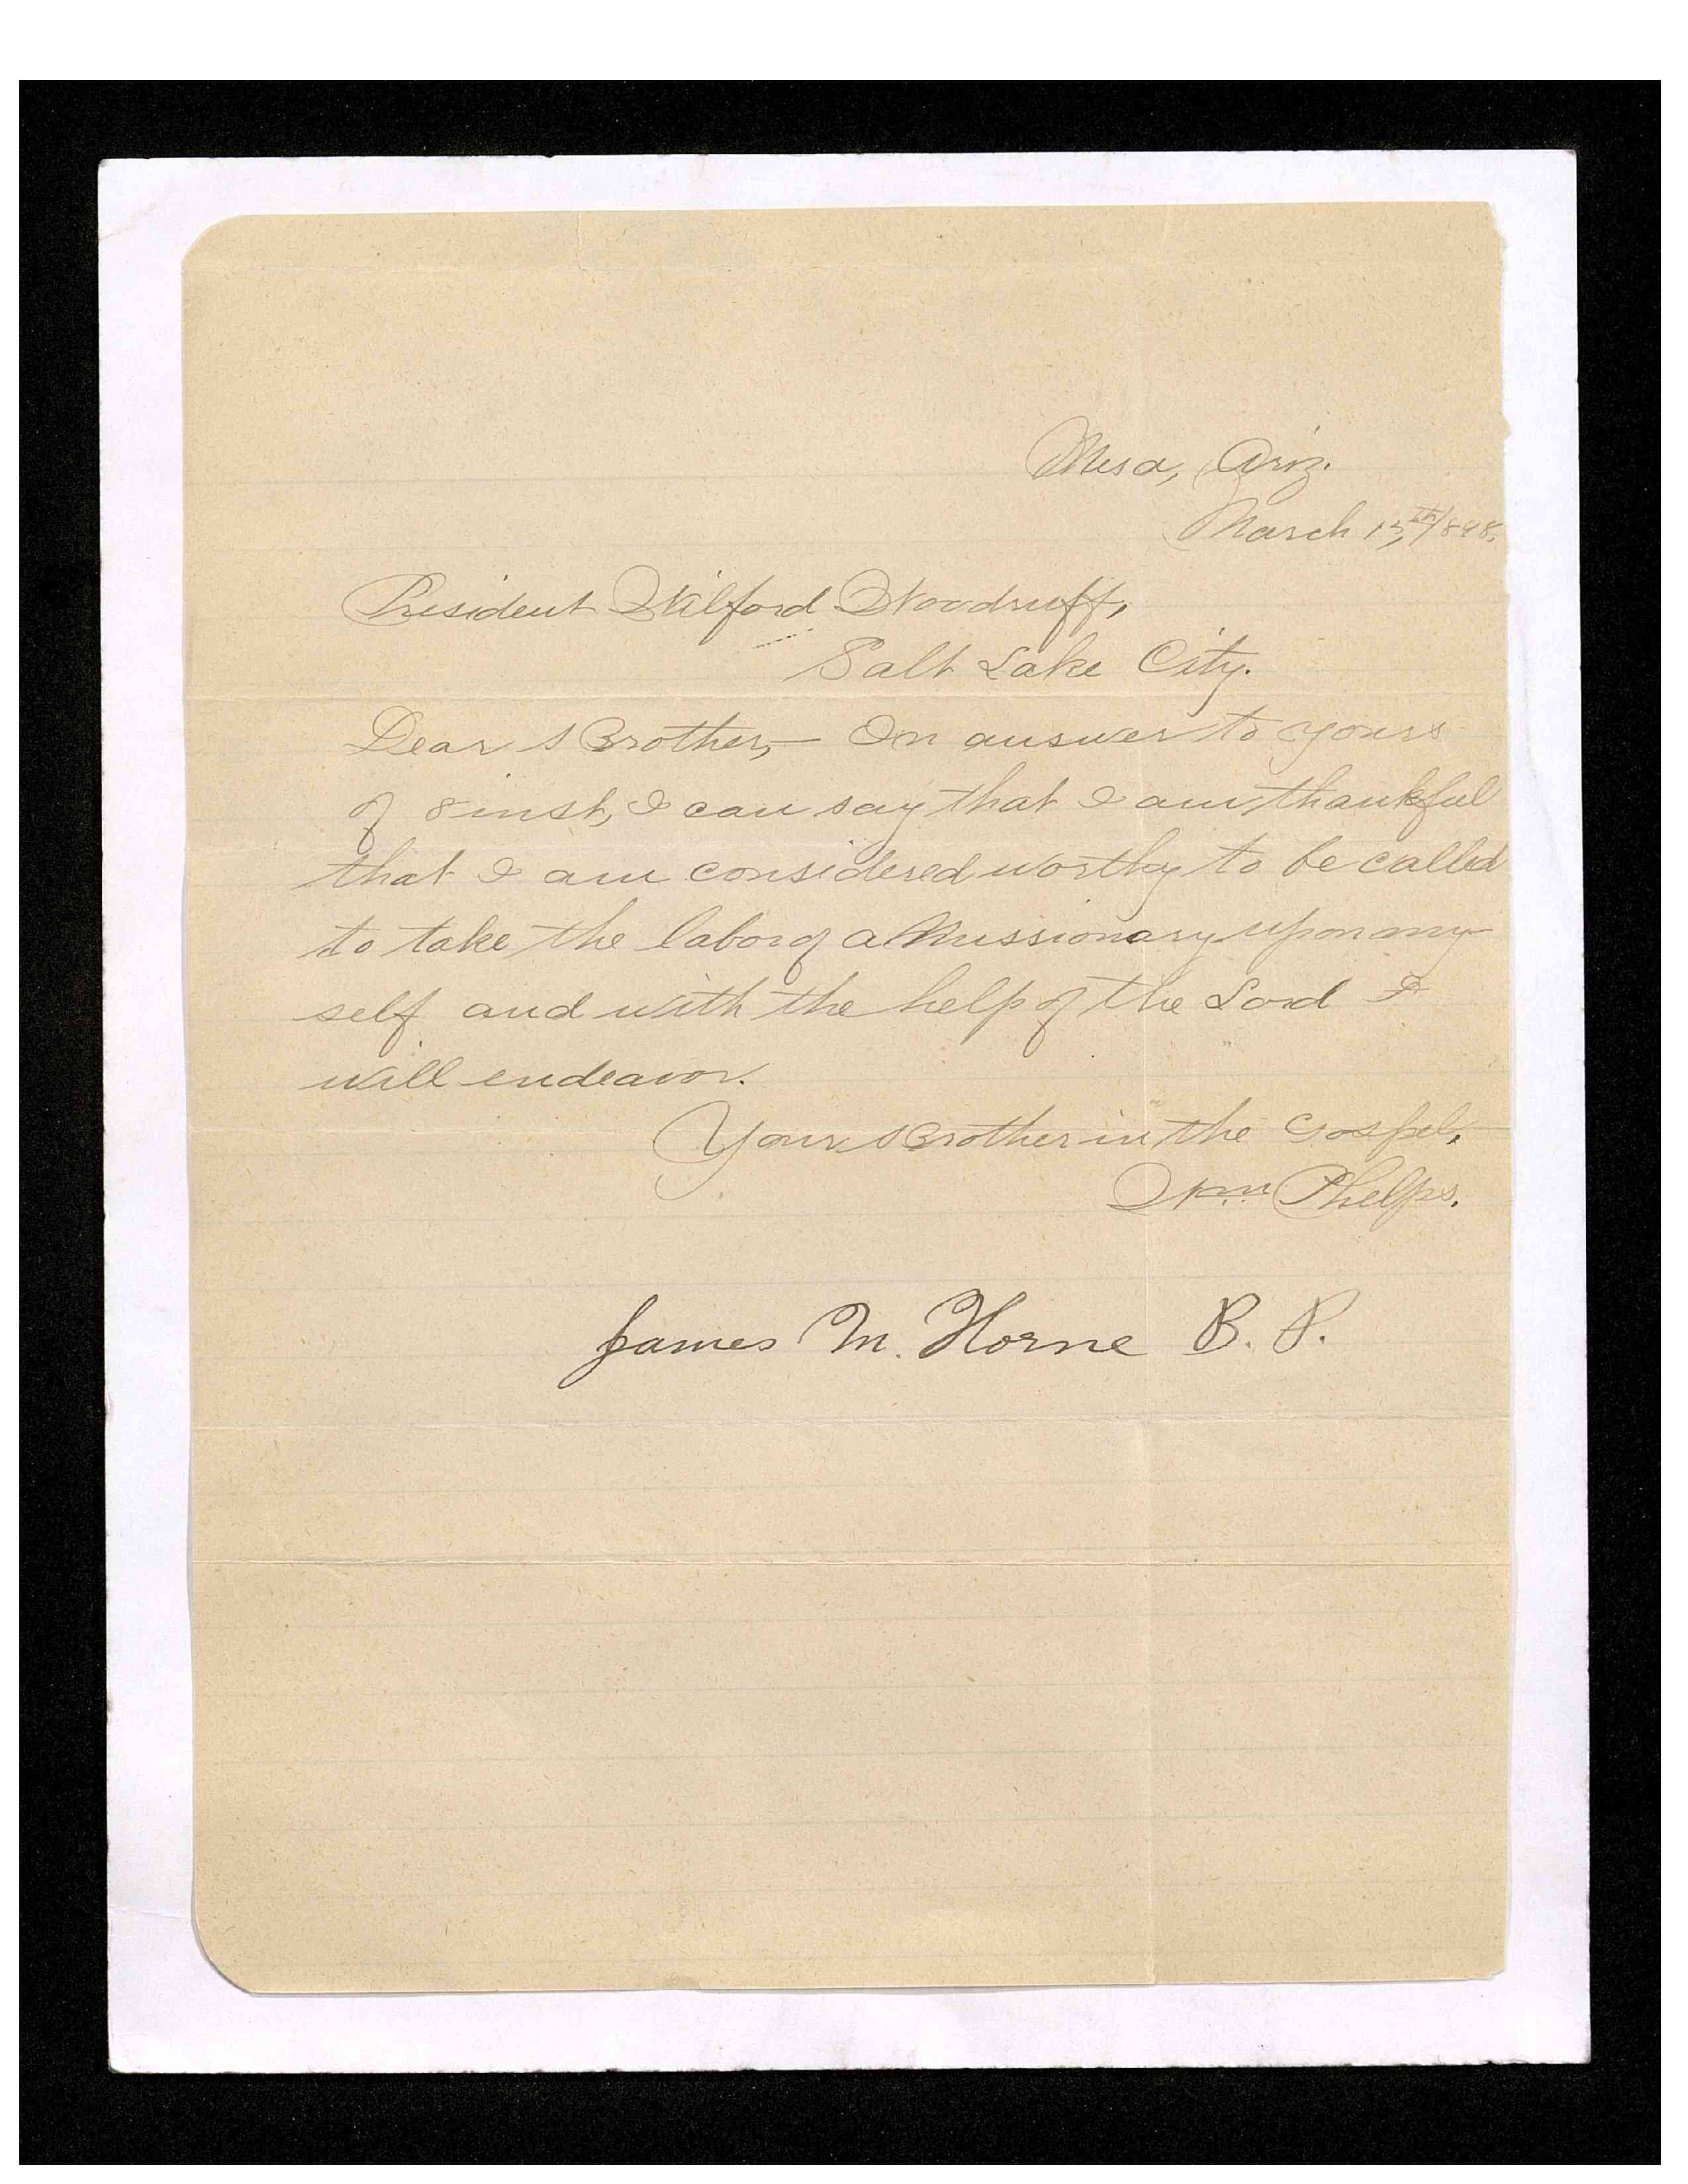 Mesa, Ariz.
March 13th, 1898.
President Wilford Woodruff,
Salt Lake City.
Dear Brother,— In answer to yours
of 8 inst, I can say that I am thankful
that I am considered worthy to be called
to take the labor of a Missionary upon my
self and with the help of the Lord I
will endeavor.
Your Brother in the Gospel,
Wm Phelps.
James M. Horne B. P.